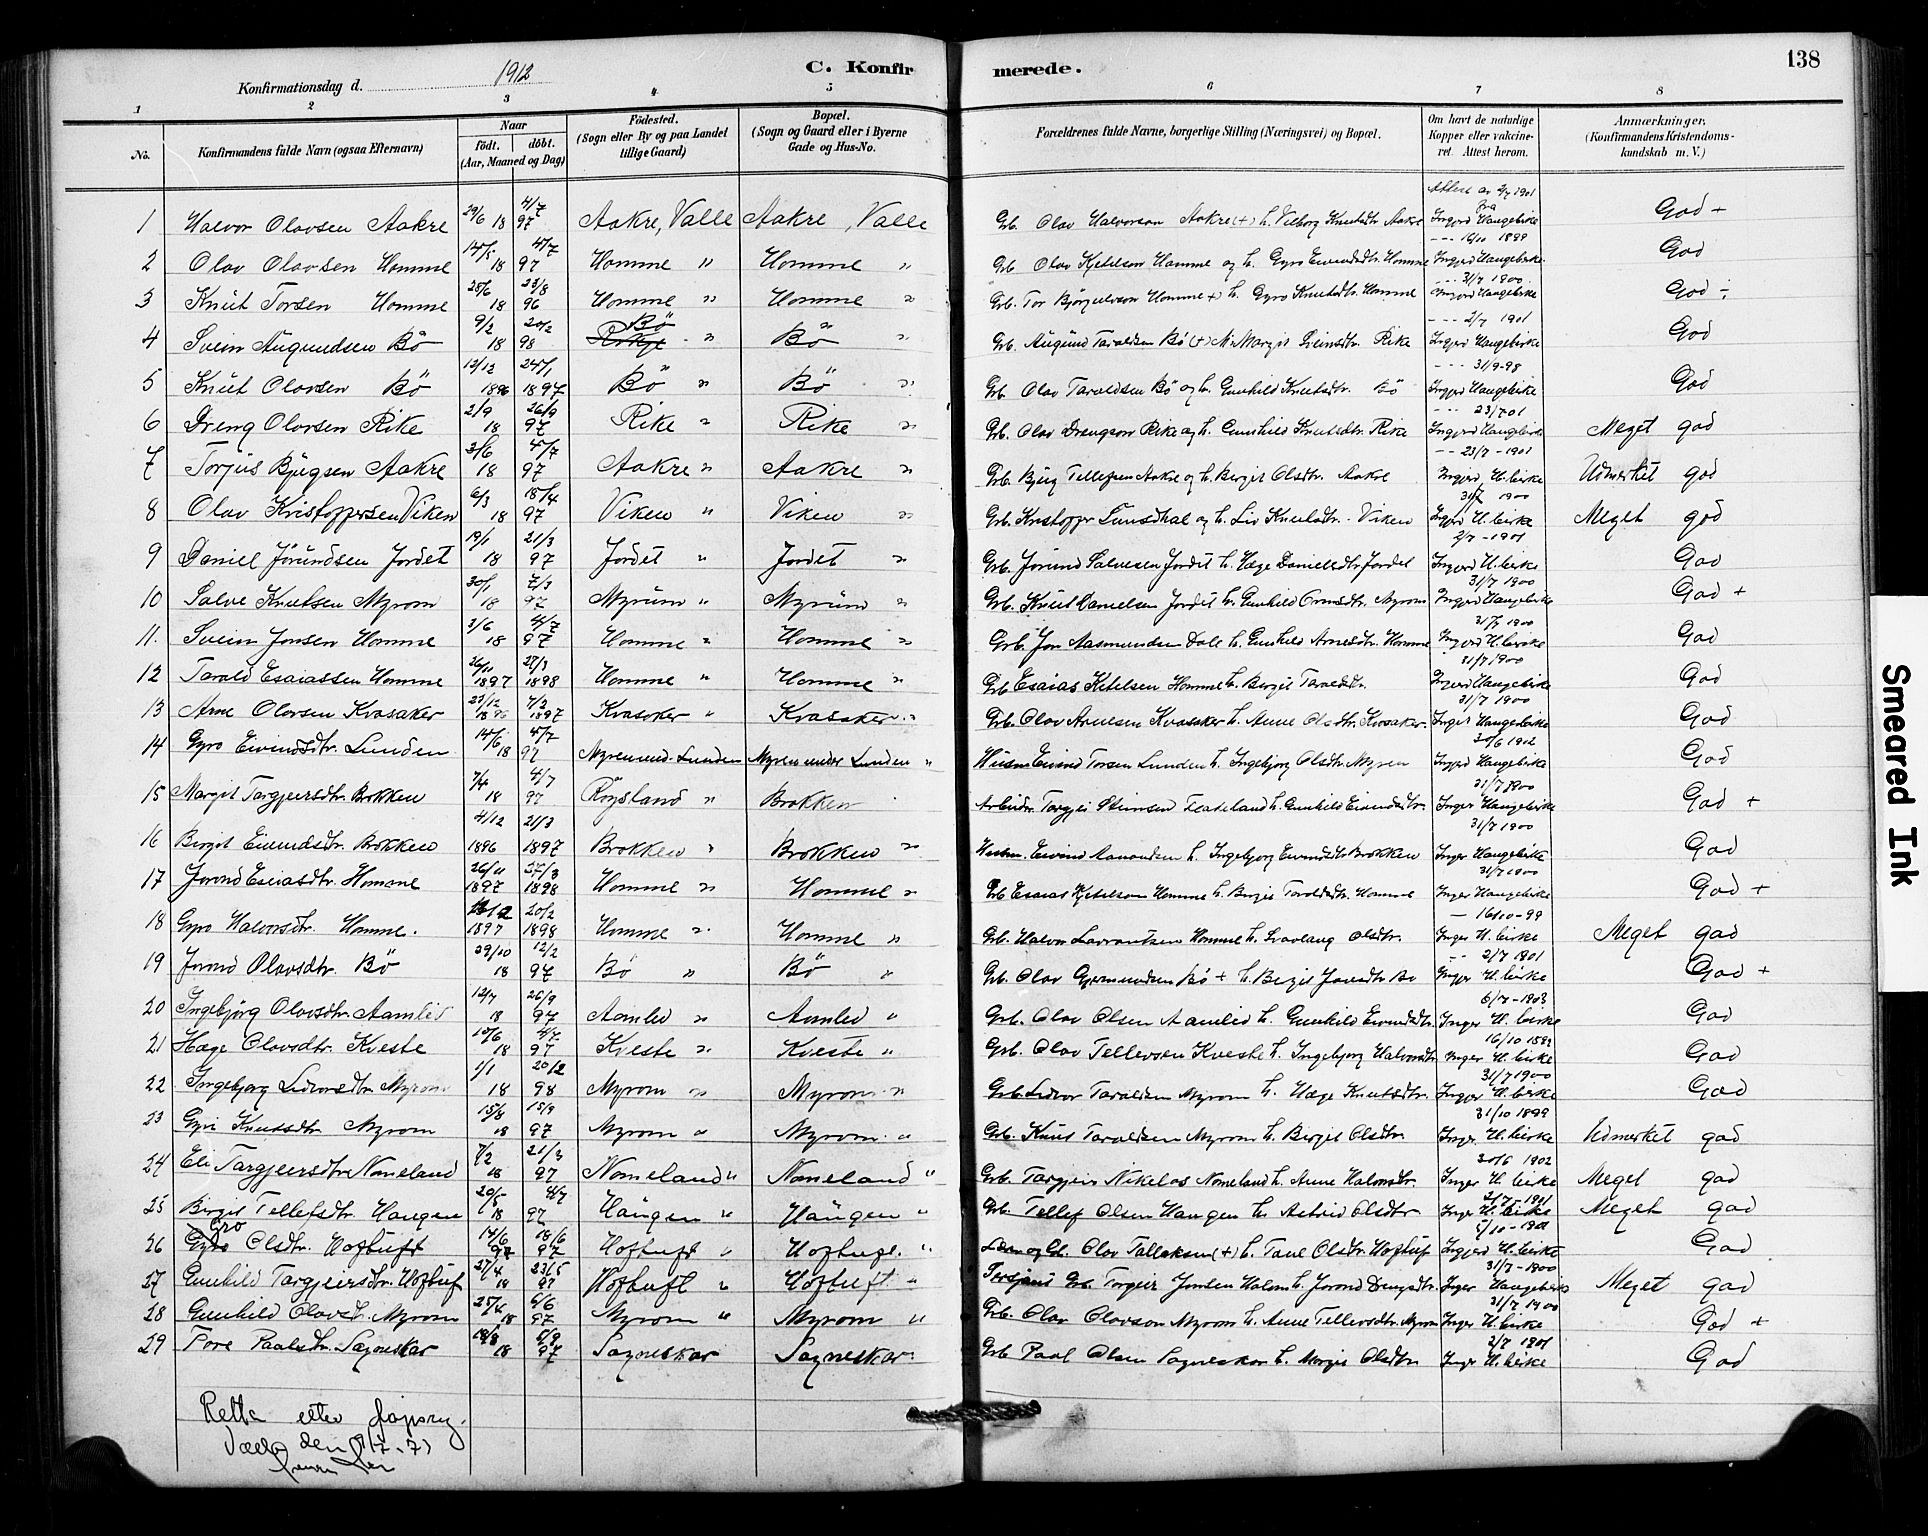 138
Konfirmationsdag d. 1912
C. Konfirmerede.
1 2 3 4 5 6 7 8
No. Konfirmandens fulde Navn (ogsaa Efternavn) Naar født. døbt. (Aar, Maaned og Dag) Fødested. (Sogn eller By og paa Landet tillige Gaard) Bopæl. (Sogn og Gaard eller i Byerne Gade og Hus-No. Forældrenes fulde Navne, borgerlige Stilling (Næringsvei) og Bopæl. Om havt de naturlige Kopper eller vakcineret. Attest herom. Anmærkninger. (Konfirmandens Kristendomskundskab m. V.)
1 Halvor Olavsen Aakre 29/6 18 4/7 97 Aakre, Valle Aakre, Valle Grb. Olav Halvorson Aakre (+) h. Vilborg Knutsdtr Aakre Attest av 2/7 1901 fra Ingerd Haugebirke God +
2 Olav Olavsen Homme 14/5 18 4/7 97 Homme " Homme " Grb Olav Ketelson Homme og h. Gyro Eivindsdtr. Homme --- 16/10 1899 Ingerd Haugebirke God
3 Knut Torsen Homme 28/6 18 23/8 96 Homme " Homme " Grb. Tor Bjørgulvson Homme + h. Gyro Knutsdtr. Homme --- 31/7 1900 Ingerd Haugebirke God
4 Svein Augundsen Bö 9/2 18 20/2 98 Bö " Bö " Grb. Augund Taraldsen Bö (+) Margit Sveinsdtr. Rike --- 2/7 1901 Ingerd Haugebirke God
5 Knut Olavsen Bö 12/12 1896 24/1 1897 Bö " Bö " Grb. Olav Taraldsen Bö og h. Gunhild Knutsdtr. Bö --- 31/9-98 Ingerd Haugebirke God
6 Dreng Olavsen Rike 2/9 18 26/9 97 Rike " Rike " Grb. Olav Drengson Rike og h. Gunhild Knutsdtr. Rike --- 23/7 01 Ingerd Haugebirke Meget god
7 Torjus Bjugsen Aakre 3/6 18 4/7 97 Aakre " Aakre " Grb. Bjug Tellefsen Aakre og h. Bergit Olsdtr. Aakre -- 23/7-1901 Ingerd H.birke Udmerket god
8 Olav Kristoppersen Viken 6/3 18 18/4 97 Viken " Viken " Grb. Kristopper og h. Liv Knutsdtr. Viken 31/7 1900 Ingerd H. birke Meget god
9 Daniel Jörundsen Jordet 19/1 18 21/3 97 Jordet " Jordet " Grb. Jörund Salvesen Jordet h. Hæge Danielsdtr Jordet 2/7-1901 Ingerd H. birke God
10 Salve Knutsen Myrom 30/1 18 97 Myrum " Myrum " Grb. Knut Danielsen Jordet h. Gunhild Ormsdtr. Myrom 31/7 1900 Ingerd Haugebirke God +
11. Svein Jonsen Homme 3/6 18 4/7 97 Homme " Homme " Grb. Jon Aasmundsen Dale h. Gunhild Arnesdtr. Homme 31/7 1900 Ingerd H.birke God
12 Tarald Esaiassen Homme 26/11 1897 27/3 1898 Homme " Homme " Grb Esaias Ketelsen Homme h. Bergit Taraldsdtr. 31/7 1900 Ingerd Haugebirke God
13 Arne Olavsen Kvasaker 23/12 1896 7/3 1897 Kvasaker " Kvasaker " Grb. Olav Arnesen Kvasaker h. Anne Olsdtr. Kvasaker 31/7 1900 Inger Haugebirke God
14 Gyro Eivindsdtr. Lunden 14/6 18 4/7 97 Myren und. Lunden Myren under Lunden " Husm Eivind Torsen Lunden h. Ingebjorg Olsdtr. Myren 30/6 1902 Ingerd Haugebirke God
15 Margit Targjeirsdtr. Brokken 7/4 18 4/7 97 Röysland " Brokken Arbeidr. Targjei h. Gunhild Eivindsdtr. 31/7 1900 Inger Haugebirke God +
16 Birgit Eivindsdtr. Brokken 4/12 1896 21/3 1897 Brokken " Brokken " Husm. Eivind h. Ingebjorg Eivindsdtr Brokken 31/7 1900 Inger Haugebirke God
17 Jorond Esaiasdtr. Homme 26/11 1897 27/3 1898 Homme " Homme " Grb Esaias Kjetelsen Homme h. Bergit Taraldsdtr. Homme 31/7 1900 Inger Haugebirke God +
18 Gyro Halvorsdtr. Homme. 1897 20/2 1898 Homme " Homme " Grb. Halvor Lavrantsen Homme h. Svavlaug Olsdtr. — 16/10-99 Inger H. birke Meget god
19 Jorond Olavsdtr. Bö 29/10 18 12/2 97 Bö " Bö " Grb. Olav Gjermundsen Bö + h. Bergit Bö -- 2/7 1901 Inger H. birke God +
20 Ingebjörg Olavsdtr. Aamlid 12/7 18 26/9 97 Aamlid " Aamlid " Grb. Olav Olsen Aamlid h. Gunhild Eivindsdtr. 6/7-1903 Inger H. birke God
21 Hæge Olavsdtr. Kveste 10/6 18 4/7 97 Kveste " Kveste " Grb. Olav Tellevsen Kveste h. Ingebjorg Halvorsdtr. 16/10 1899 Inger H. birke God
22 Ingebjorg Lidvorsdtr. Myrom 1/1 18 20/2 98 Myrom " Myrom " Grb. Lidvor Taraldsen Myrom h. Hæge Knutsdtr. 31/7 1900 Inger H. birke God
23 Gyri Knutsdtr. Myrom 15/8 18 15/9 97 Myrom " Myrom " Grb. Knut Taraldsen Myrom h. Bergit Olsdtr. 31/10 1899 Inger H. birke Udmerket god
24 Eli Targjeirsdtr. Nomeland 7/2 18 21/3 97 Nomeland " Nomeland " Grb. Targjeir Nikelos Nomeland h. Anne Halvorsdtr. 30/6 1902 Inger H. birke Meget god
25 Birgit Tellefsdtr. Haugen 20/5 18 4/7 97 Haugen " Haugen " Grb. Tellef Olsen Haugen h. Astrid Olsdtr 2/7-1901 Inger H. birke Meget god
26 Gro Olsdtr. Hoftuft 14/6 97 18/6 97 Hoftuft " Hoftuft. " Olav Tallaksen (+) h. Tone Olsdtr. Hoftuf 5/10-1901 Ingerd H. birke God
27 Gunhild Targjeirsdtr. Hoftuf 27/4 18 23/5 97 Hoftuft " Hoftuft " Grb. Torgeir Jonsen h. Jorond Drengsdtr. 31/7-1900 Inger Haugebirke Meget god
28 Gunhild Olavsdtr. Myrom 25/4 18 6/6 97 Myrom " Myrom " Grb. Olav Olavson Myrom h. Anne Tellevsdtr. Myrom 31/7 1900 Inger H. birke God +
29 Tore Paalsdtr. Sagneskar 18 97 Sagneskar Sagneskar Grb Paal Olsen Sagneskar h. Margit Olsdtr 2/7 1901 Inger H. birke God
Retta etter
den
Smeared Ink